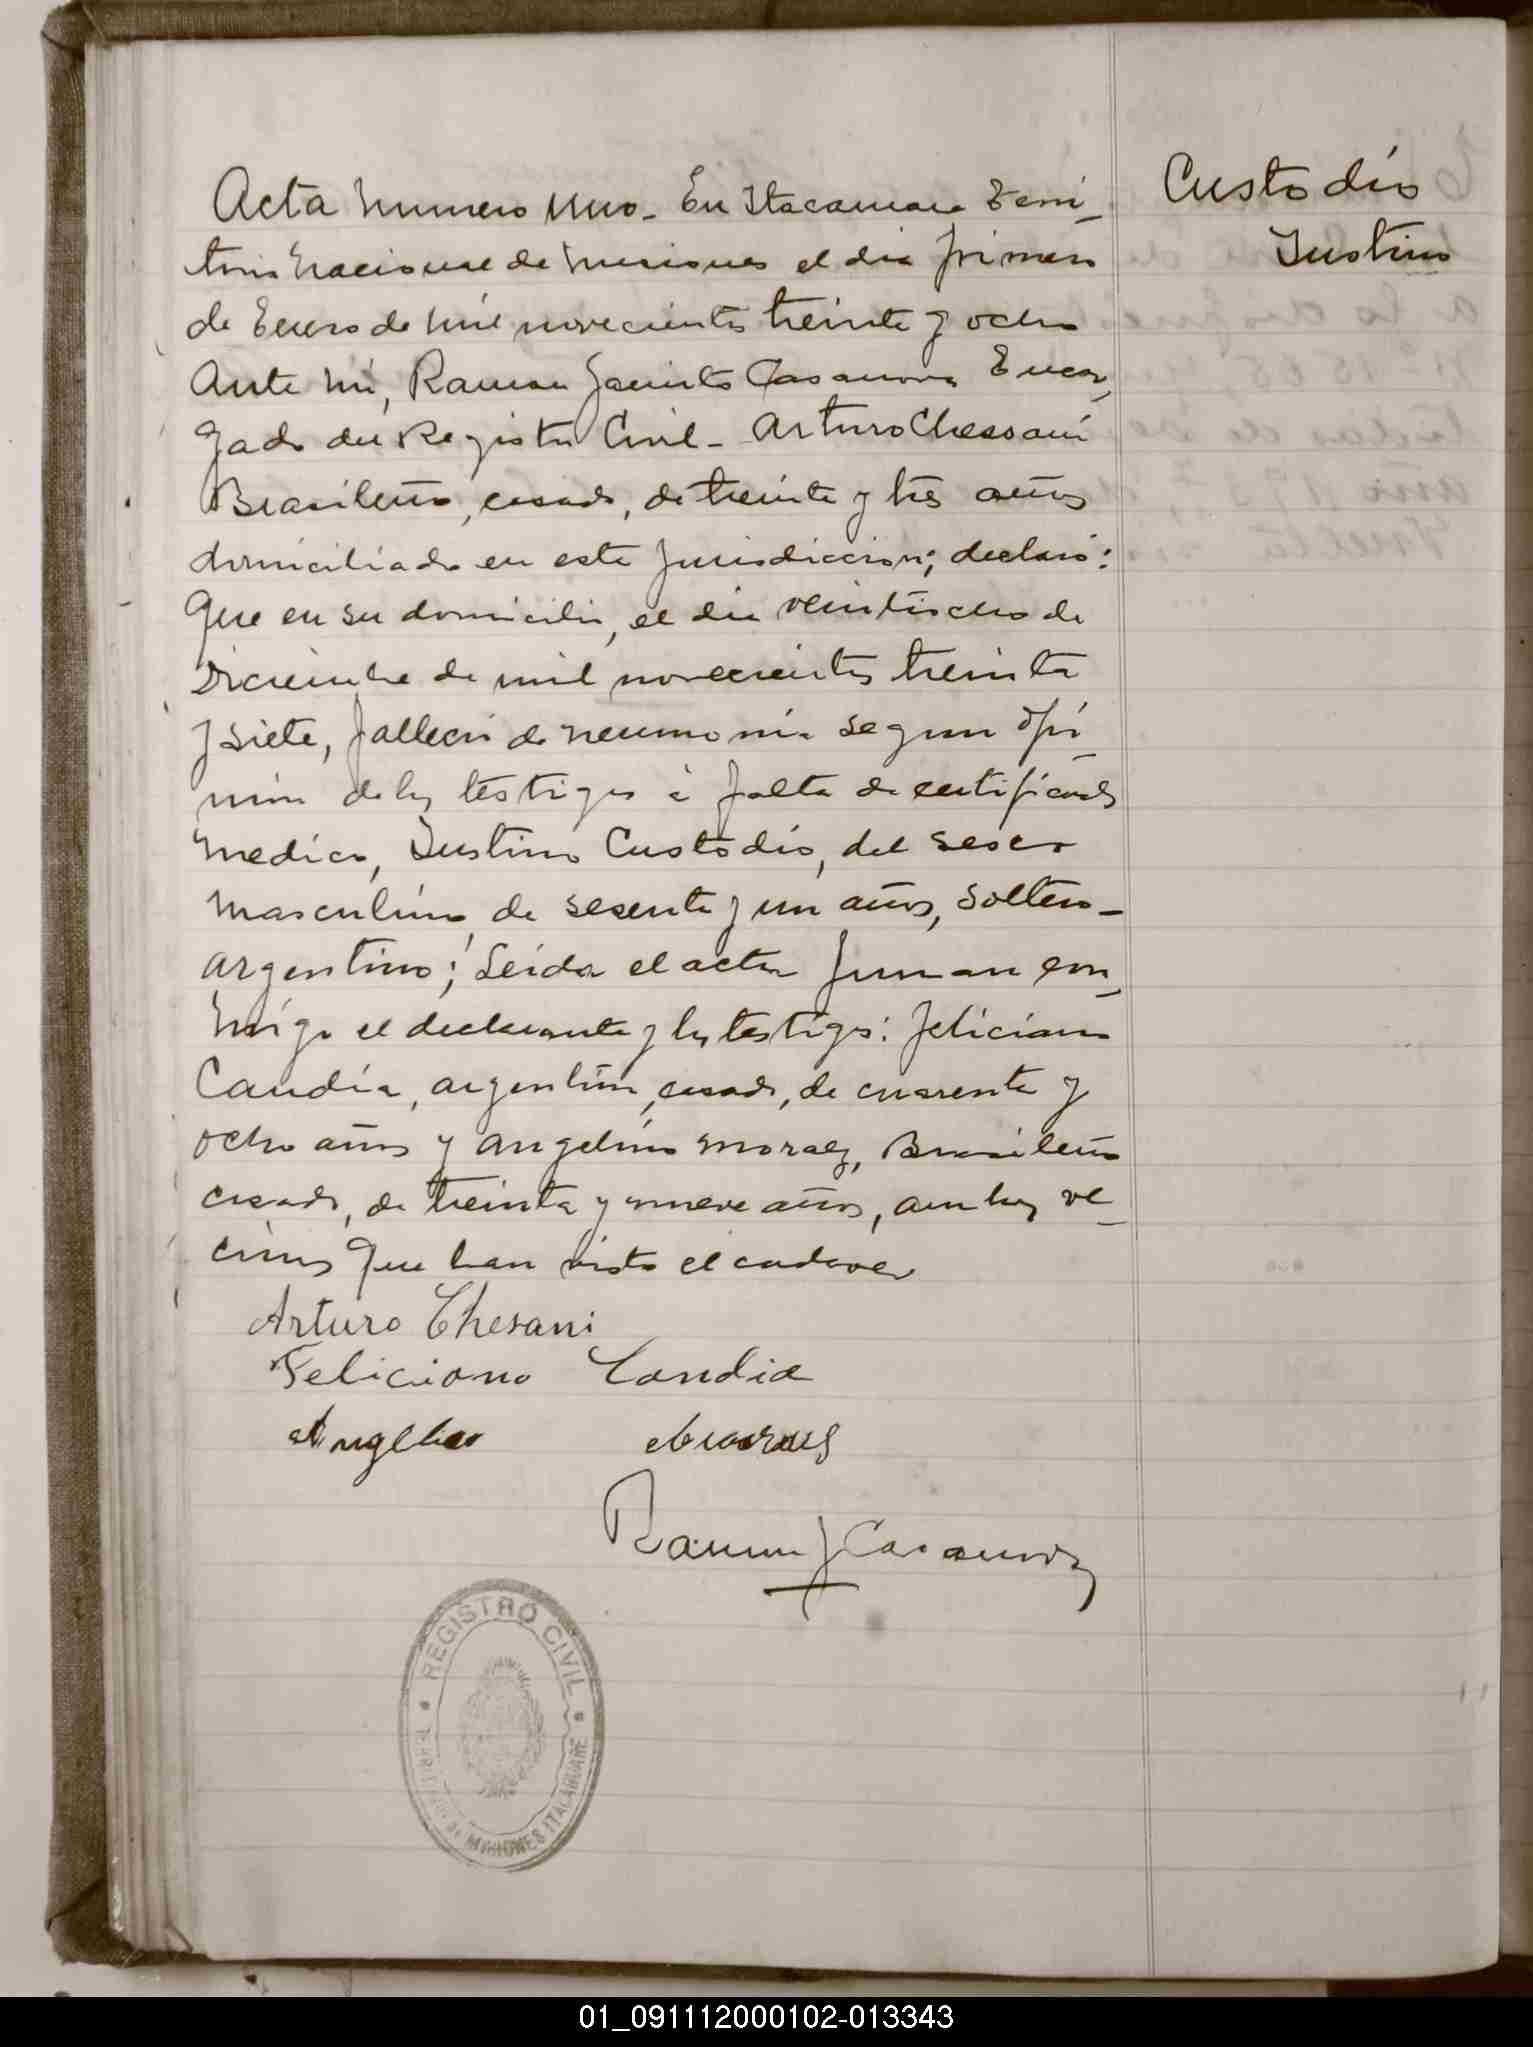 Custodio
Justino
Acta numero uno. En Itacaruare Terri-
torio Nacional de Misiones el dia primero
de Enero de mil novecientos treinta y ocho
Ante mi, Ramon Jacinto Casanova Encar-
gado del Registro Civil - Arturo Chessani
Brasileño, casado, de treinta y tres años
domiciliado en esta jurisdiccion; declaró:
Que en su domicilio, el dia veintiocho de
Diciembre de mil novecientos treinta
y siete, falleció de neumonia segun opi-
nión de los testigos á falta de certificado
medico, Justino Custodio, del sexo
masculino, de sesenta y un años, soltero -
argentino; Leida el acta firman con-
migo el declarante y los testigos: Feliciano
Candia, argentino, casado, de cuarenta y
ocho años y Angelino Morales, Brasileño
casado, de treinta y nueve años, ambos ve-
cinos que han visto el cadaver
Arturo Chesani
Feliciano Candia
Angelino Moraes
Ramon J Casanova
REGISTRO CIVIL
TERRITORIO DE MISIONES ITACARUARE
01_091112000102-013343